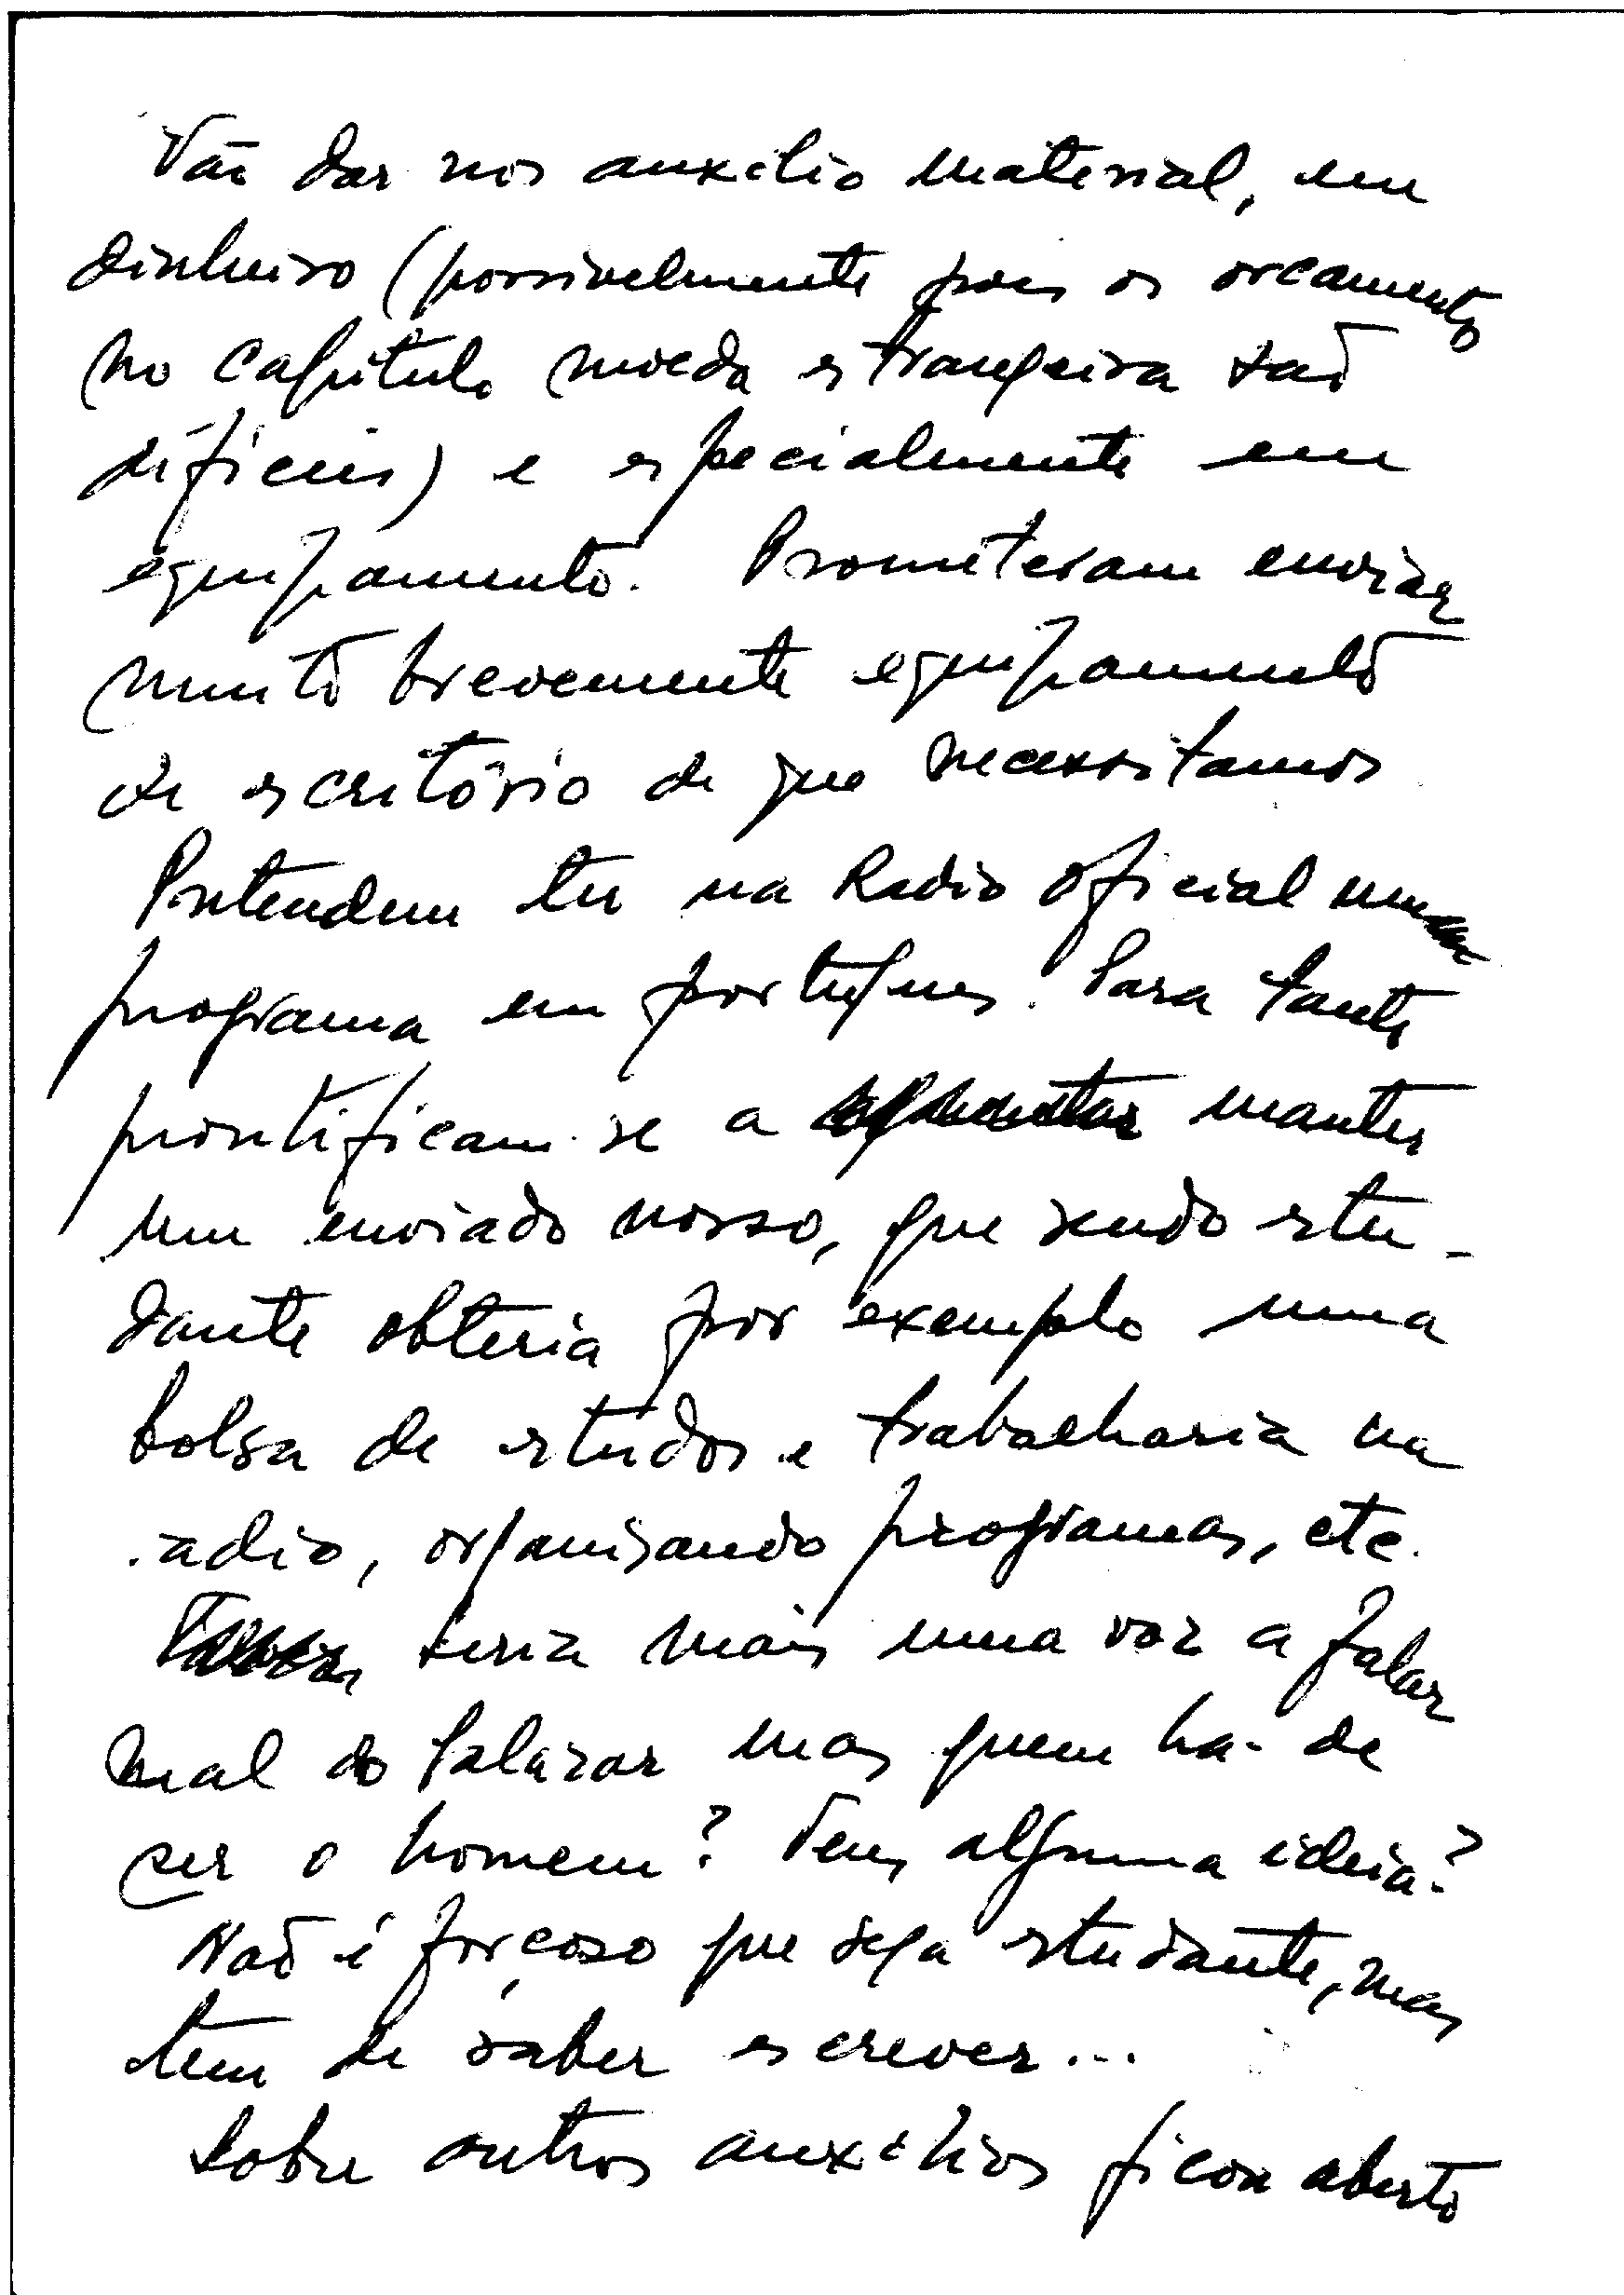 Vão dar nos auxilio material, em
dinheiro (possivelmente pois os orcamentos
no capitulo moeda estrangeira são
difíceis) e especialmente em
equipamento. Prometeram enviar
muito brevemente equipamento
de escritório de que necessitamos
Pretendem ter na Radio oficial um
programa em portugues. Para tanto
prontificam-se a manter
um enviado nosso, que sendo estu-
dante obteria por exemplo uma
bolsa de estudos e trabalharia na
radio, organisando programas, etc.
seria mais uma voz a falar
mal do Salazar mas quem ha-de
ser o homem? Tens alguma ideia?
Não é forçoso que seja estudante, mas
tem de saber escrever...
Sobre outros auxilios ficou aberto